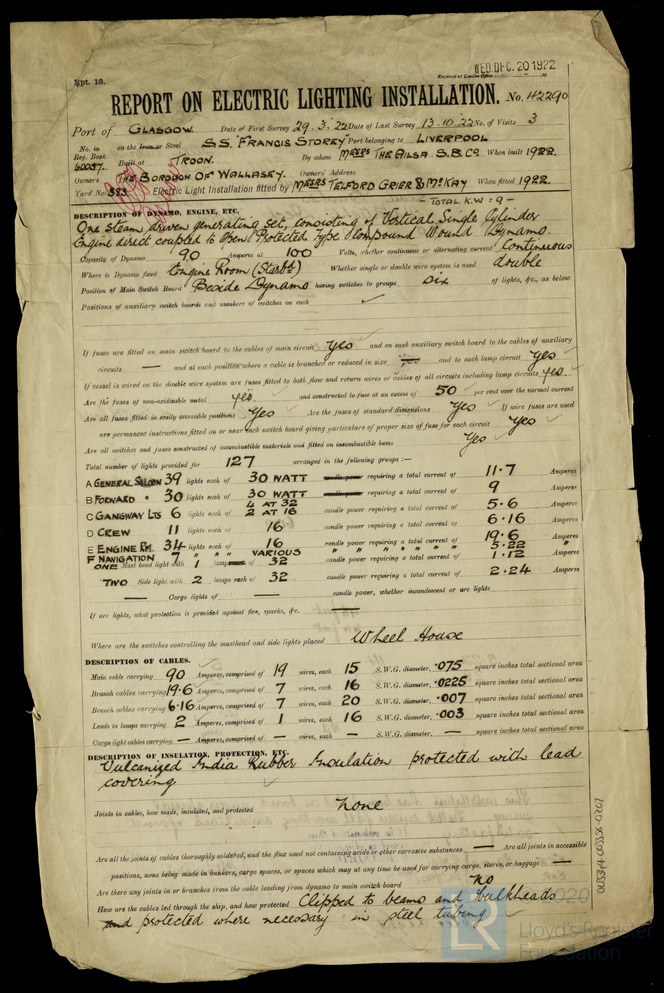 WED. DEC. 20 1922
Rpt. 13.
Received at London Office
REPORT ON ELECTRIC LIGHTING INSTALLATION. No. 42290
Port of GLASGOW. Date of First Survey 29.3.22 Date of Last Survey 13.10.22 No. of Visits 3
No. in Reg. Book 60037. on the Iron or Steel S.S. "FRANCIS STOREY" Port belonging to LIVERPOOL
Built at TROON. By whom MESSRS THE AILSA S.B. CO. When built 1922.
Owners THE BOROUGH OF WALLASEY. Owners' Address
Yard No. 383 Electric Light Installation fitted by MESSRS TELFORD GRIER & McKAY When fitted 1922.
TOTAL K.W = 9
DESCRIPTION OF DYNAMO, ENGINE, ETC.
One steam driven generating set, consisting of Vertical Single Cylinder
Engine direct coupled to Open Protected Type Compound Wound Dynamo.
Capacity of Dynamo 90 Amperes at 100 Volts, whether continuous or alternating current Continuous
Where is Dynamo fixed Engine Room (Starbd) Whether single or double wire system is used double
Position of Main Switch Board Beside Dynamo having switches to groups six of lights, &c., as below
Positions of auxiliary switch boards and numbers of switches on each
If fuses are fitted on main switch board to the cables of main circuit Yes and on each auxiliary switch board to the cables of auxiliary
circuits — and at each position where a cable is branched or reduced in size yes and to each lamp circuit Yes
If vessel is wired on the double wire system are fuses fitted to both flow and return wires or cables of all circuits including lamp circuits Yes.
Are the fuses of non-oxidizable metal Yes. and constructed to fuse at an excess of 50 per cent over the normal current
Are all fuses fitted in easily accessible positions Yes Are the fuses of standard dimensions Yes If wire fuses are used
are permanent instructions fitted on or near each switch board giving particulars of proper size of fuse for each circuit Yes
Are all switches and fuses constructed of incombustible materials and fitted on incombustible bases Yes
Total number of lights provided for 127 arranged in the following groups :—
A GENERAL SALOON 39 lights each of 30 WATT candle power requiring a total current of 11.7 Amperes
B FORWARD " 30 lights each of 30 WATT candle power requiring a total current of 9 Amperes
C GANGWAY LTS 6 lights each of 4 AT 32 2 AT 16 candle power requiring a total current of 5.6 Amperes
D CREW 11 lights each of 16 candle power requiring a total current of 6.16 Amperes
E ENGINE RM. 34 lights each of 16 candle power requiring a total current of 19.6 Amperes
F NAVIGATION 7 " " " VARIOUS " " " " " " 5.22 "
ONE Mast head light with 1 lamp of 32 candle power requiring a total current of 1.12 Amperes
TWO Side light with 2 lamps each of 32 candle power requiring a total current of 2.24 Amperes
— Cargo lights of — candle power, whether incandescent or arc lights
If arc lights, what protection is provided against fire, sparks, &c. —
Where are the switches controlling the masthead and side lights placed Wheel House
DESCRIPTION OF CABLES.
Main cable carrying 90 Amperes, comprised of 19 wires, each 15 S.W.G. diameter, .075 square inches total sectional area
Branch cables carrying 19.6 Amperes, comprised of 7 wires, each 16 S.W.G. diameter, .0225 square inches total sectional area
Branch cables carrying 6.16 Amperes, comprised of 7 wires, each 20 S.W.G. diameter, .007 square inches total sectional area
Leads to lamps carrying 2 Amperes, comprised of 1 wires, each 16 S.W.G. diameter, .003 square inches total sectional area
Cargo light cables carrying — Amperes, comprised of — wires, each — S.W.G. diameter, — square inches total sectional area
DESCRIPTION OF INSULATION, PROTECTION, ETC.
Vulcanized India Rubber Insulation protected with lead
covering
Joints in cables, how made, insulated, and protected None
Are all the joints of cables thoroughly soldered, and the flux used not containing acids or other corrosive substances — Are all joints in accessible
positions, none being made in bunkers, cargo spaces, or spaces which may at any time be used for carrying cargo, stores, or baggage —
Are there any joints in or branches from the cable leading from dynamo to main switch board no
How are the cables led through the ship, and how protected Clipped to beams and bulkheads
and protected where necessary in steel tubing
003344-003352-0201
2020
LR
Lloyd's Register
Foundation